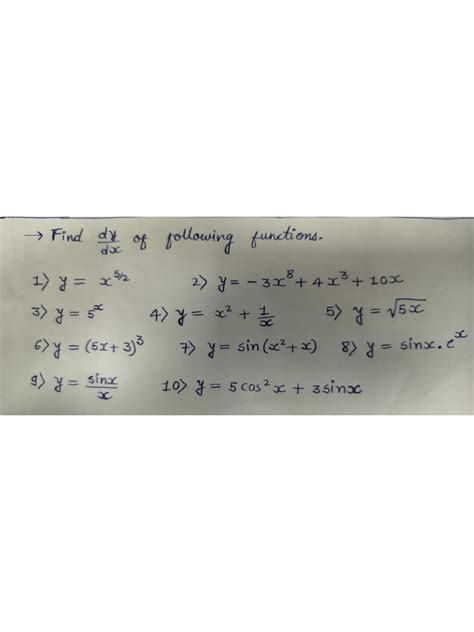 → Find dy/dx of following functions.
1) y = x^5/2 2) y = - 3x^8 + 4x^3 + 10x
3) y = 5^x 4) y = x^2 + 1/x 5) y = √5x
6) y = (5x + 3)^3 7) y = sin(x^2 + x) 8) y = sinx . e^x
9) y = sinx/x 10) y = 5 cos^2 x + 3 sinx